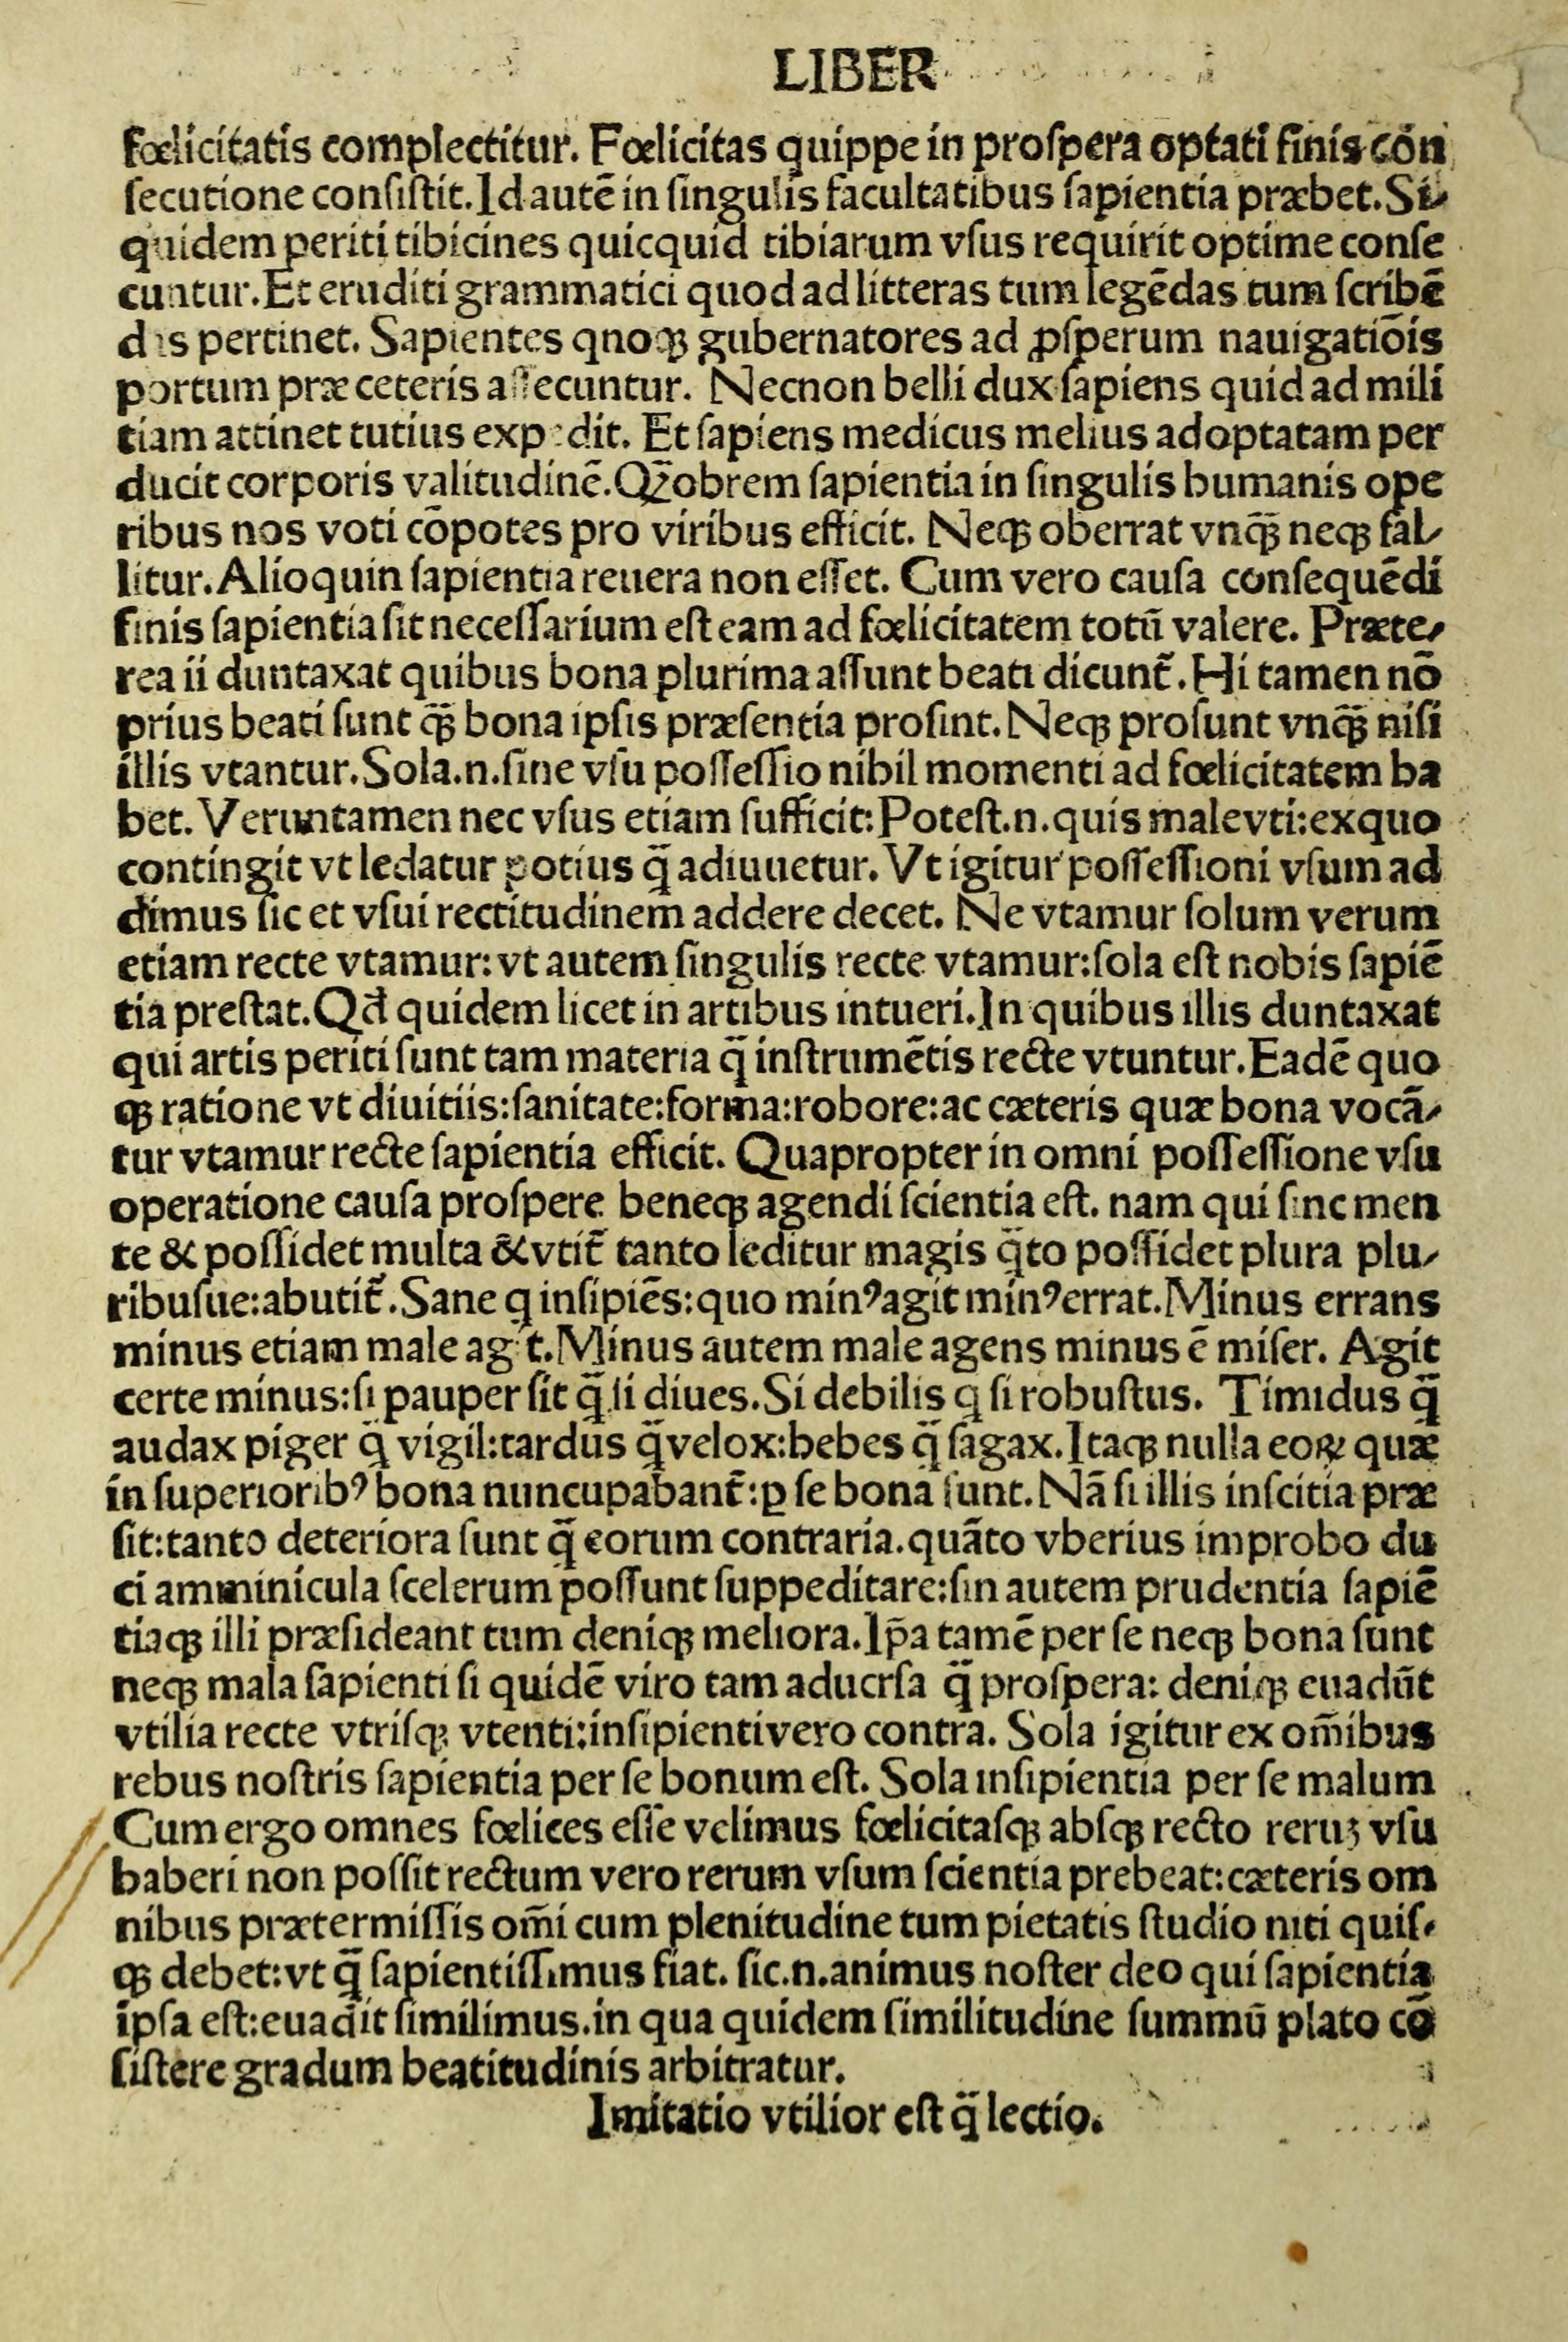 LIBER
fœlicitatis complectitur. Fœlicitas quippe in proſpera optati finis con
ſecutione conſiſtit. Id autē in ſingulis facultatibus ſapientia præbet. Si⸗
quidem periti tibicines quicquid tibiarum vſus requirit optime conſe
cuntur. Et eruditi grammatici quod ad litteras tum legēdas tum ſcribē
das pertinet. Sapientes qnoqꝫ gubernatores ad ꝓſperum nauigatiōis
portum præ ceteris aſſecuntur. Necnon belli dux ſapiens quid ad mili
tiam attinet tutius expedit. Et ſapiens medicus melius ad optatam per
ducit corporis valitudinē. Qꝫ̄obrem ſapientia in ſingulis humanis ope
ribus nos voti cōpotes pro viribus efficit. Neqꝫ oberrat vnqꝫ̄ neqꝫ fal⸗
litur. Alioquin ſapientia reuera non eſſet. Cum vero cauſa conſequēdi
finis ſapientia ſit neceſſarium eſt eam ad fœlicitatem totū valere. Præte⸗
rea ii duntaxat quibus bona plurima aſſunt beati dicunt᷑. Hi tamen nō
prius beati ſunt qꝫ̄ bona ipſis præſentia proſint. Neqꝫ proſunt vnqꝫ̄ niſi
illis vtantur. Sola .n. ſine vſu poſſeſſio nihil momenti ad fœlicitatem ha
bet. Veruntamen nec vſus etiam ſufficit: Poteſt .n. quis male vti: ex quo
contingit vt ledatur potius q̄ adiuuetur. Vt igitur poſſeſſioni vſum ad
dimus ſic et vſui rectitudinem addere decet. Ne vtamur ſolum verum
etiam recte vtamur: vt autem ſingulis recte vtamur: ſola eſt nobis ſapiē
tia preſtat. Qđ quidem licet in artibus intueri. In quibus illis duntaxat
qui artis periti ſunt tam materia q̄ inſtrumētis recte vtuntur. Eadē quo
qꝫ ratione vt diuitiis: ſanitate: forma: robore: ac cæteris quæ bona vocā⸗
tur vtamur recte ſapientia efficit. Quapropter in omni poſſeſſione vſu
operatione cauſa proſpere beneqꝫ agendi ſcientia eſt. nam qui ſine men
te & poſſidet multa & vtit᷑ tanto leditur magis q̄to poſſidet plura plu⸗
ribuſue: abutit᷑. Sane q inſipiēs: quo minꝰ agit minꝰ errat. Minus errans
minus etiam male agit. Minus autem male agens minus ē miſer. Agit
certe minus: ſi pauper ſit q̄ ſi diues. Si debilis q ſi robuſtus. Timidus q̄
audax piger q̄ vigil: tardus q̄ velox: hebes q̄ ſagax. Itaqꝫ nulla eoꝝ quæ
in ſuperioribꝰ bona nuncupabant᷑: ꝑ ſe bona ſunt. Nā ſi illis inſcitia præ
ſit: tanto deteriora ſunt q̄ eorum contraria. quāto vberius improbo du
ci amminicula ſcelerum poſſunt ſuppeditare: ſin autem prudentia ſapiē
tiaqꝫ illi præſideant tum deniqꝫ meliora. Ip̄a tamē per ſe neqꝫ bona ſunt
neqꝫ mala ſapienti ſi quidē viro tam aduerſa q̄ proſpera: deniqꝫ euadūt
vtilia recte vtriſqꝫ vtenti: inſipienti vero contra. Sola igitur ex om̄ibus
rebus noſtris ſapientia per ſe bonum eſt. Sola inſipientia per ſe malum
Cum ergo omnes fœlices eſſe velimus fœlicitaſqꝫ abſqꝫ recto reruꝫ vſu
haberi non poſſit rectum vero rerum vſum ſcientia prebeat: cæteris om
nibus prætermiſſis om̄i cum plenitudine tum pietatis ſtudio niti quiſ⸗
qꝫ debet: vt q̄ ſapientiſſimus fiat. ſic .n. animus noſter deo qui ſapientia
ipſa eſt: euadit ſimilimus. in qua quidem ſimilitudine ſummū plato cō
ſiſtere gradum beatitudinis arbitratur.
Imitatio vtilior eſt q̄ lectio.